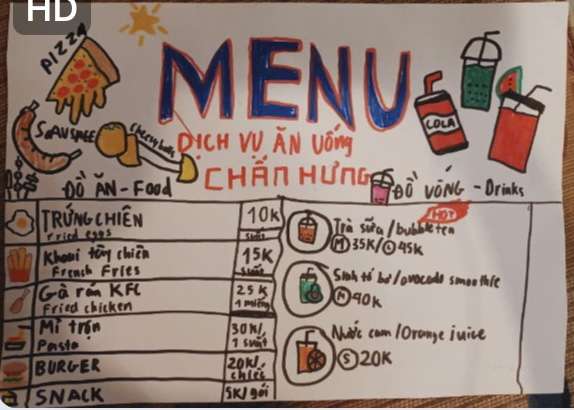 HD
PIZZA
MENU
SAUSAGE
Cheese balls
COLA
DỊCH VỤ ĂN UỐNG
CHẤN HƯNG
ĐỒ ĂN - Food
ĐỒ UỐNG - Drinks
TRỨNG CHIÊN
Fried eggs
10K
suất
Khoai tây chiên
French Fries
15K
suất
Gà rán KFC
Fried chicken
25K
1 miếng
Mì trộn
Pasta
30K/
1 suất
BURGER
20K/
chiếc
SNACK
5K/gói
HOT
Trà sữa/bubble tea
M 35K/L 45K
Sinh tố bơ/avocado smoothie
M 40K
Nước cam/Orange juice
S 20K